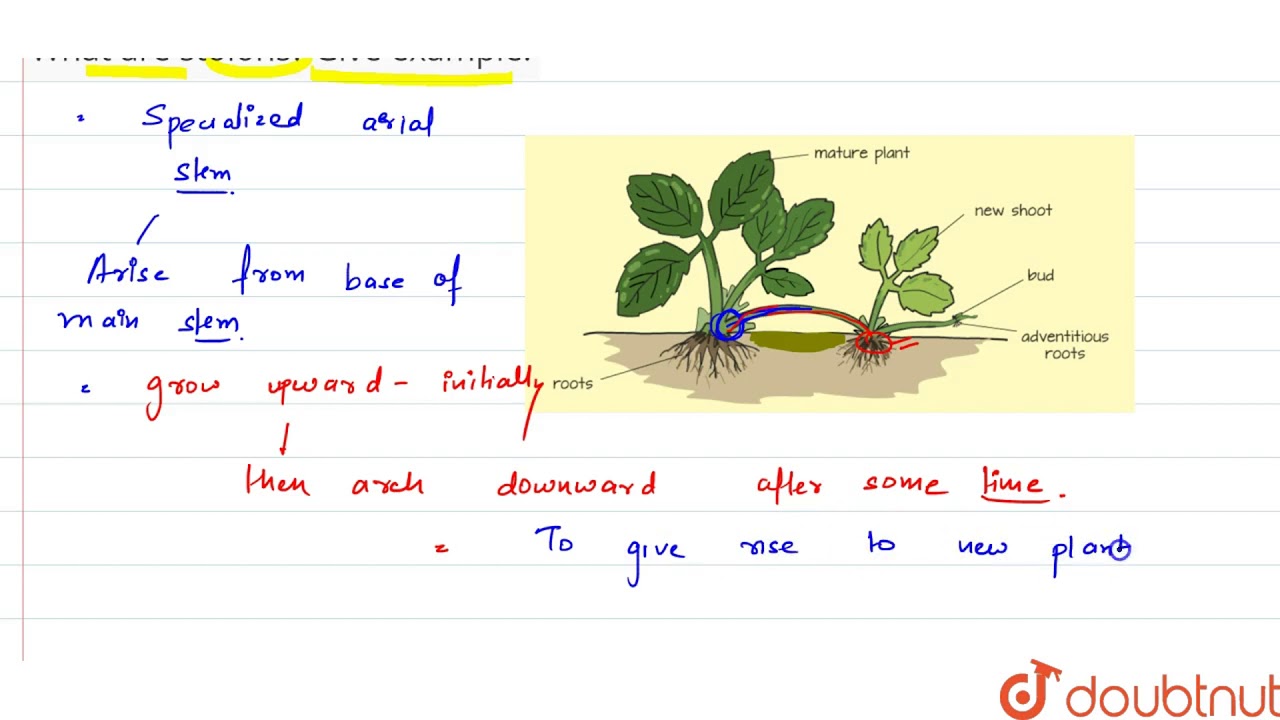 What are stolons? Give example.
Specialized aerial
stem.
Arise from base of
main stem.
grow upward - initially
then arch downward after some time.
To give rise to new plant
mature plant
new shoot
bud
adventitious
roots
roots
doubtnut